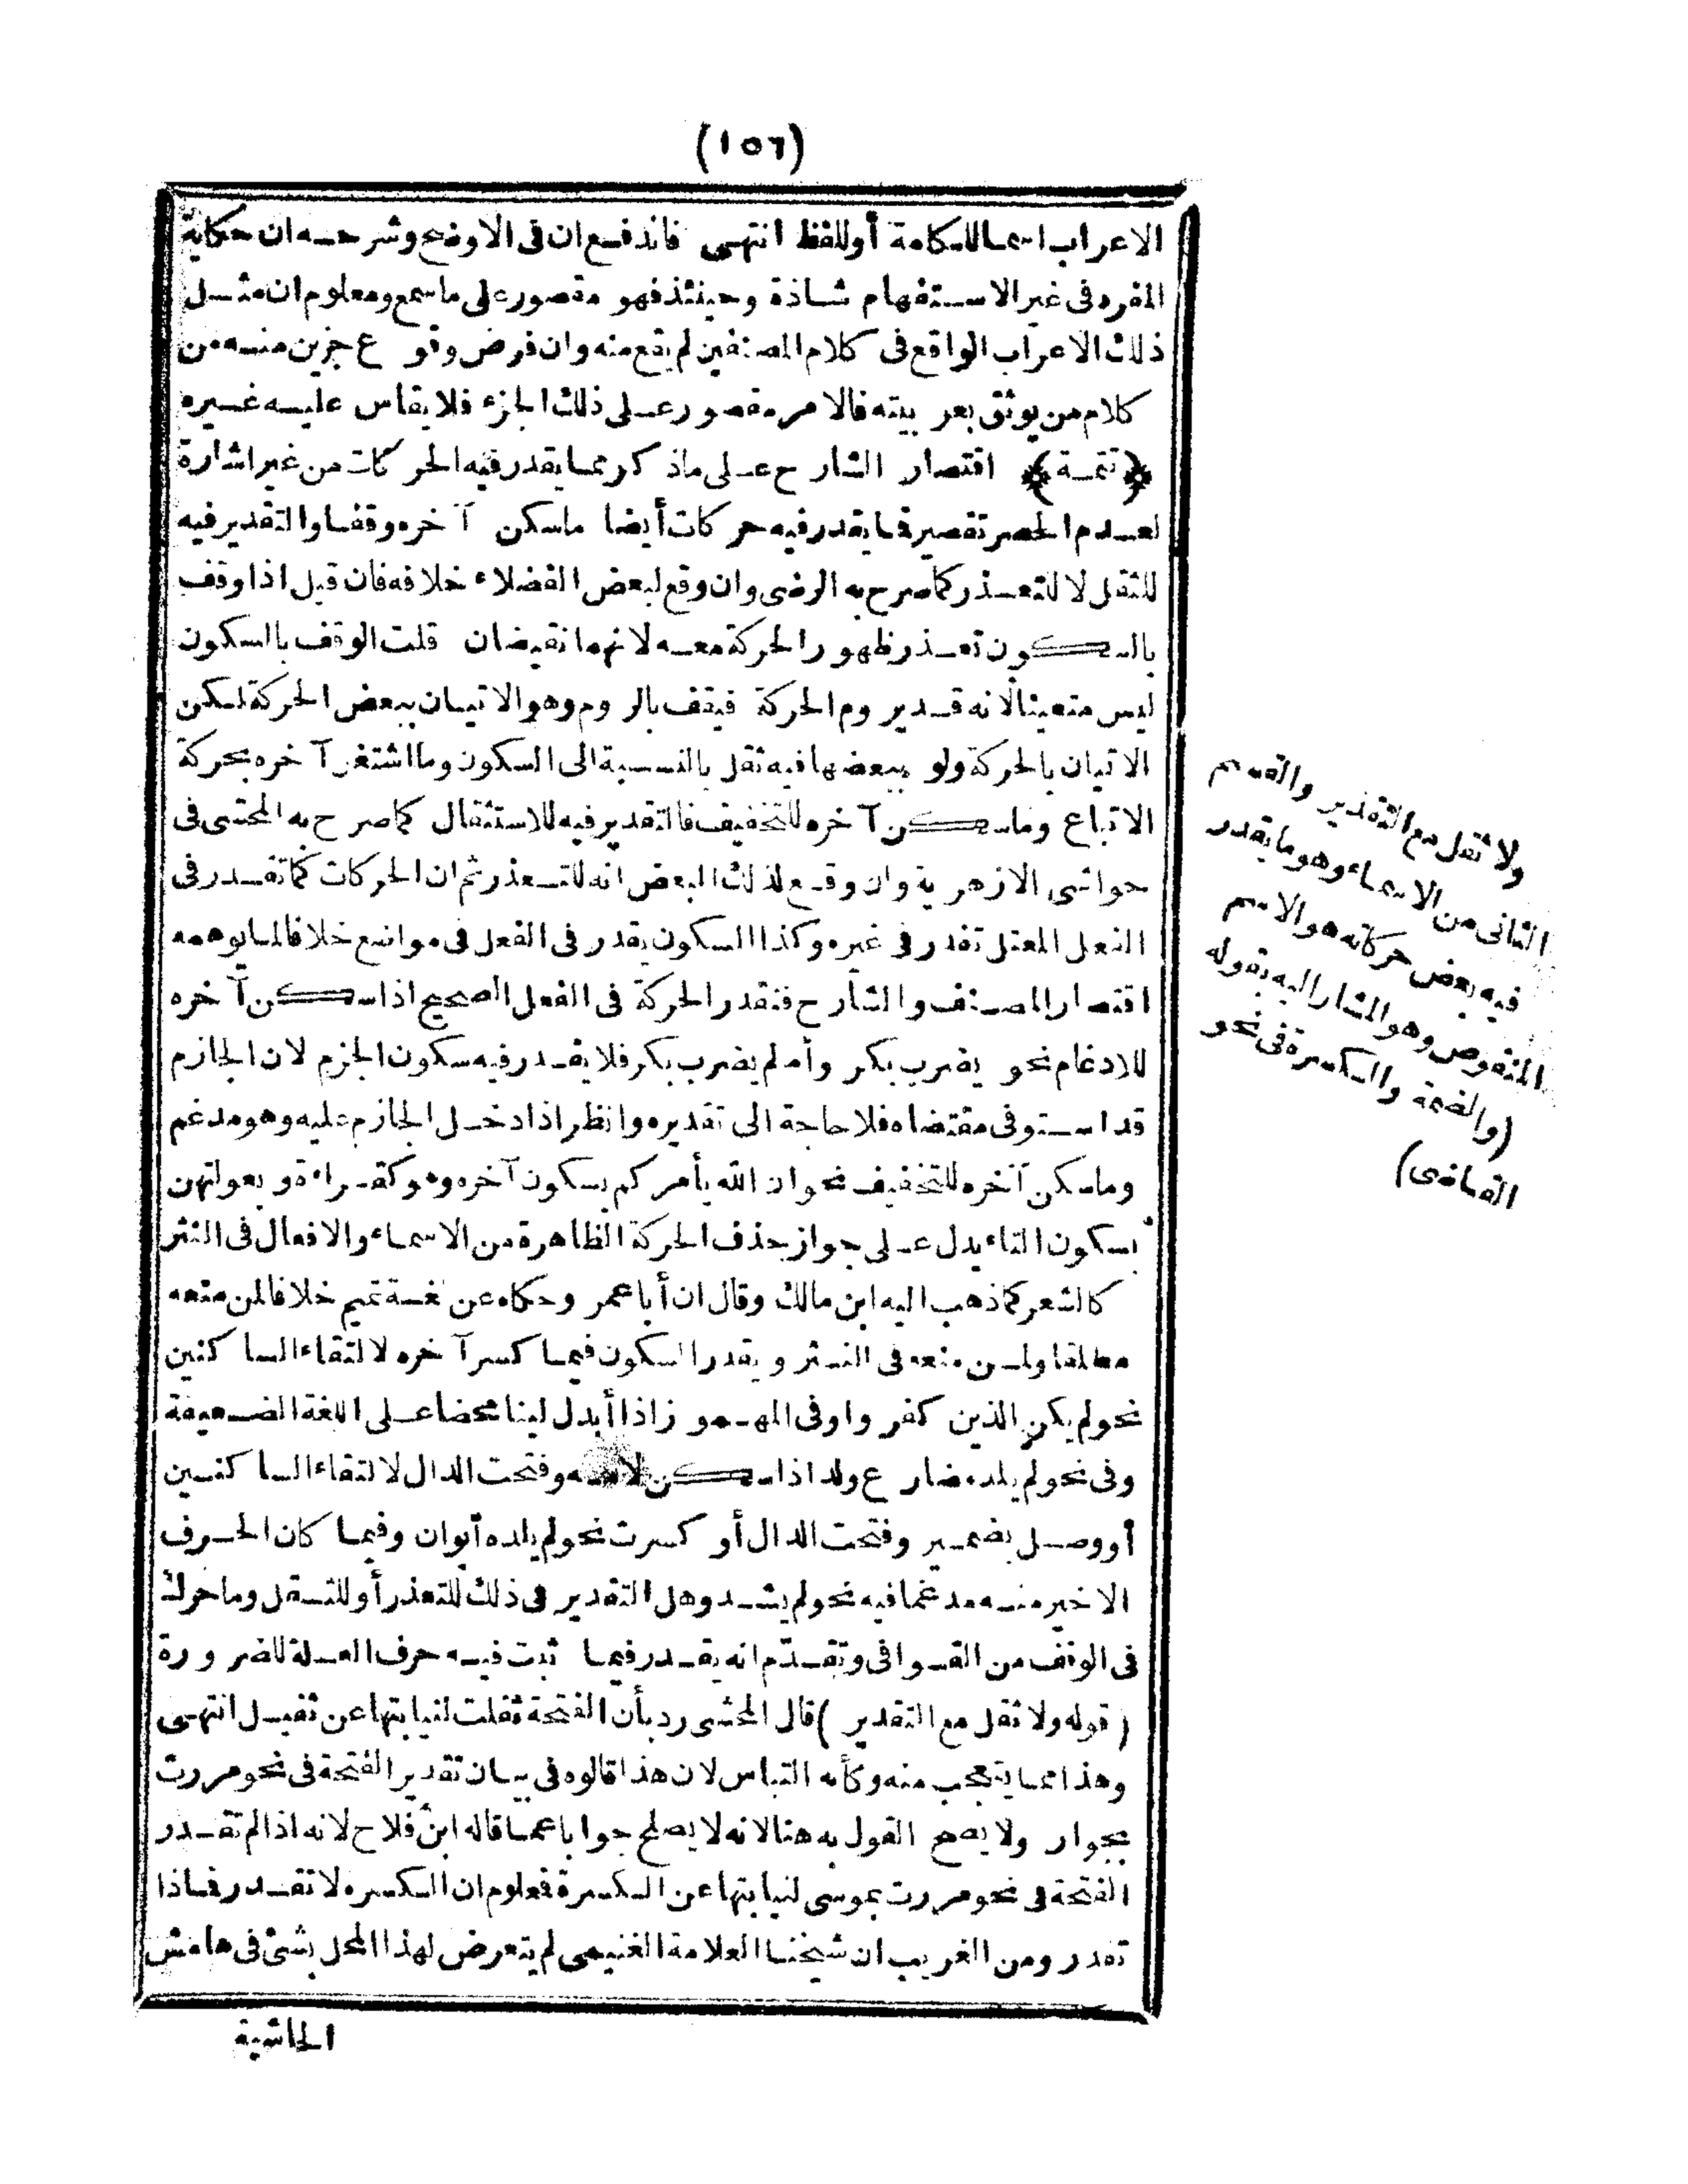 (١٥٦)
الاعراب اسما للكلمة أو للفظ انتهى فاندفع ان فى الاوضح وشرحه ان حكاية
المفرد فى غير الاستفهام شاذة وحينئذ فهو مقصور على ما سمع ومعلوم ان مثل
ذلك الاعراب الواقع فى كلام المصنفين لم يقع منه وان فرض وقوع جزئى منه من
كلام من يوثق بعربيته فالامر مقصور على ذلك الجزء فلا يقاس عليه غيره
﴿تتمة﴾ اقتصار الشارح على ماذكر مما يقدر فيه الحركات من غير اشارة
لعدم الحصر تقصير فما يقدر فيه حركات أيضا ماسكن آخره وقفا والتقدير فيه
للثقل لا للتعذر كما صرح به الرضى وان وقع لبعض الفضلاء خلافه فان قيل اذا وقف
بالسكون تعذر ظهور الحركة معه لانهما نقيضان قلت الوقف بالسكون
ليس متعينا لانه قد يروم الحركة فيقف بالروم وهو الاتيان ببعض الحركة لكن
الاتيان بالحركة ولو ببعضها فيه ثقل بالنسبة الى السكون وما اشتغل آخره بحركة
الاتباع وماسكن آخره للتخفيف فالتقدير فيه للاستثقال كما صرح به المحشى فى
حواشى الازهرية وان وقع لذلك البعض انه للتعذر ثم ان الحركات كما تقدر فى
الفعل المعتل تقدر فى غيره وكذا السكون يقدر فى الفعل فى مواضع خلافا لما يوهمه
اقتصار المصنف والشارح فتقدر الحركة فى الفعل الصحيح اذا سكن آخره
للادغام نحو يضرب بكر وأما لم يضرب بكر فلا يقدر فيه سكون الجزم لان الجازم
قد استوفى مقتضاه فلا حاجة الى تقديره وانظر اذا دخل الجازم عليه وهو مدغم
وماسكن آخره للتخفيف نحو ان الله يأمركم بسكون آخره وهو كقراءة وبعولتهن
بسكون التاء يدل على جواز حذف الحركة الظاهرة من الاسماء والافعال فى النثر
كالشعر كما ذهب اليه ابن مالك وقال ان أبا عمر وحكاه عن لغة تميم خلافا لمن منعه
مطلقا ولمن منعه فى النثر ويقدر السكون فيما كسر آخره لالتقاء الساكنين
نحو لم يكن الذين كفروا وفى المهموز اذا أبدل لينا محضا على اللغة الضعيفة
وفى نحو لم يلد مضارع ولد اذا سكن لامه وفتحت الدال لالتقاء الساكنين
أو وصل بضمير وفتحت الدال أو كسرت نحو لم يلده أبوان وفيما كان الحرف
الاخير منه مدغما فيه نحو لم يشد وهل التقدير فى ذلك للتعذر أو للثقل وما حرك
فى الوقف من القوافى وتقدّم انه يقدر فيما ثبت فيه حرف العلة للضرورة
(قوله ولا ثقل مع التقدير) قال المحشى رد بأن الفتحة ثقلت لنيابتها عن ثقيل انتهى
وهذا مما يتعجب منه وكأنه التباس لان هذا قالوه فى بيان تقدير الفتحة فى نحو مررت
بجوار ولا يصح القول به هنا لانه لا يصلح جوابا عما قاله ابن فلاح لانه اذا لم تقدر
الفتحة فى نحو مررت بموسى لنيابتها عن الكسرة فمعلوم ان الكسرة لا تقدر فاذا
تقدر ومن الغريب ان شيخنا العلامة الغنيمى لم يتعرض لهذا المحل بشئ فى هامش
الحاشية
ولا ثقل مع التقدير والقسم
الثانى من الاسماء وهو ما يقدر
فيه بعض حركاته هو الاسم
المنقوص وهو المشار اليه بقوله
(والضمة والكسرة فى نحو
القاضى)